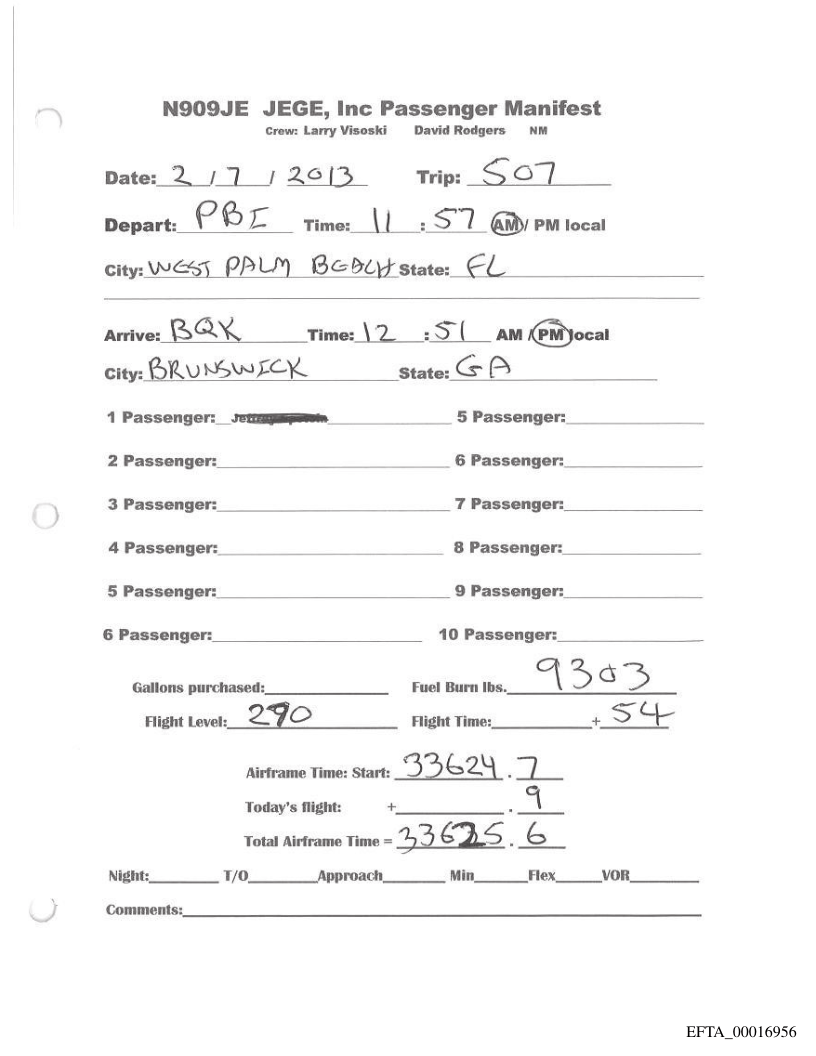 N909JE JEGE, Inc Passenger Manifest
Crew: Larry Visoski David Rodgers NM
Date: 2 / 7 / 2013 Trip: 507
Depart: PBI Time: 11 : 57 AM / PM local
City: WEST PALM BEACH State: FL
Arrive: BQK Time: 12 : 51 AM / PM local
City: BRUNSWICK State: GA
1 Passenger: 5 Passenger:
2 Passenger: 6 Passenger:
3 Passenger: 7 Passenger:
4 Passenger: 8 Passenger:
5 Passenger: 9 Passenger:
6 Passenger: 10 Passenger:
Gallons purchased: Fuel Burn lbs. 9303
Flight Level: 290 Flight Time: + 54
Airframe Time: Start: 33624 . 7
Today's flight: + . 9
Total Airframe Time = 33625 . 6
Night: T/O Approach Min Flex VOR
Comments:
EFTA_00016956